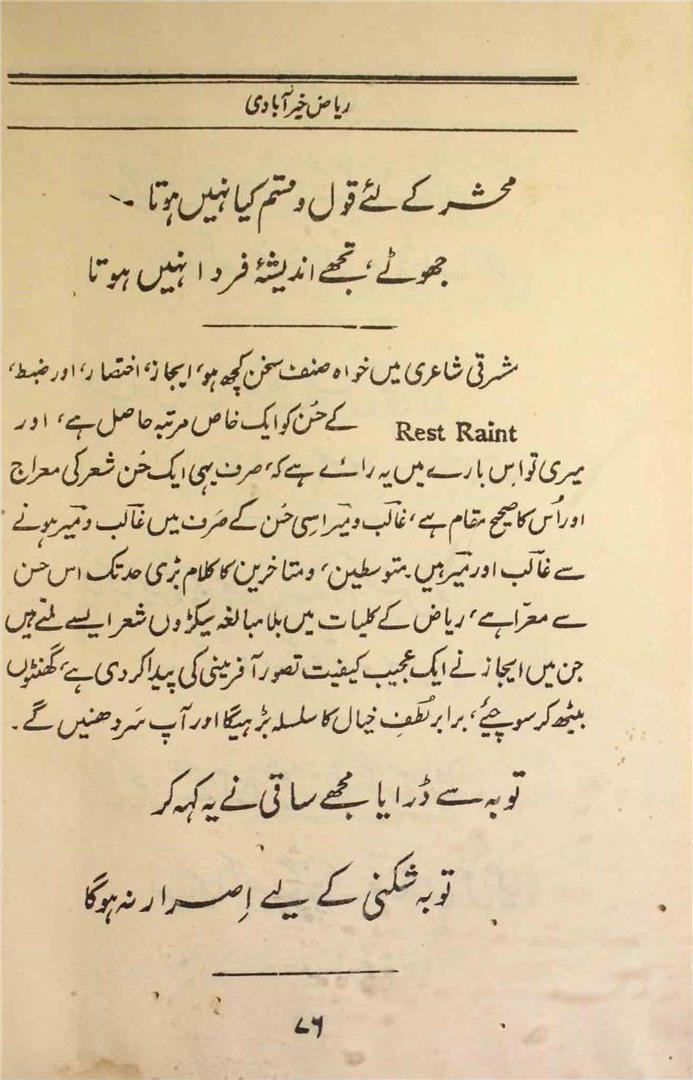 ریاض خیرآبادی
محشر کے لئے قول و قسم کیا نہیں ہوتا
جھوٹے، تجھے اندیشۂ فردا نہیں ہوتا
مشرقی شاعری میں خواہ صنف سخن کچھ ہو، ایجاز، اختصار، اور ضبط،
Rest Raint کے حُسن کو ایک خاص مرتبہ حاصل ہے، اور
میری تو اس بارے میں یہ رائے ہے کہ، صرف یہی ایک حُسن شعر کی معراج
اور اُس کا صحیح مقام ہے، غالب و میر اسی حُسن کے صَرف میں غالب و میر ہونے
سے غالب اور میر ہیں۔ متوسطین، و متاخرین کا کلام بڑی حد تک اس حسن
سے معرّا ہے، ریاض کے کلیات میں بلا مبالغہ سیکڑوں شعر ایسے ملتے ہیں
جن میں ایجاز نے ایک عجیب کیفیت تصور آفرینی کی پیدا کر دی ہے، گھنٹوں
بیٹھ کر سوچیئے، برابر لُطفِ خیال کا سلسلہ بڑہیگا اور آپ سَر دھنیں گے۔
توبہ سے ڈرایا مجھے ساقی نے یہ کہہ کر
توبہ شکنی کے لیے اِصرار نہ ہوگا
۷۶